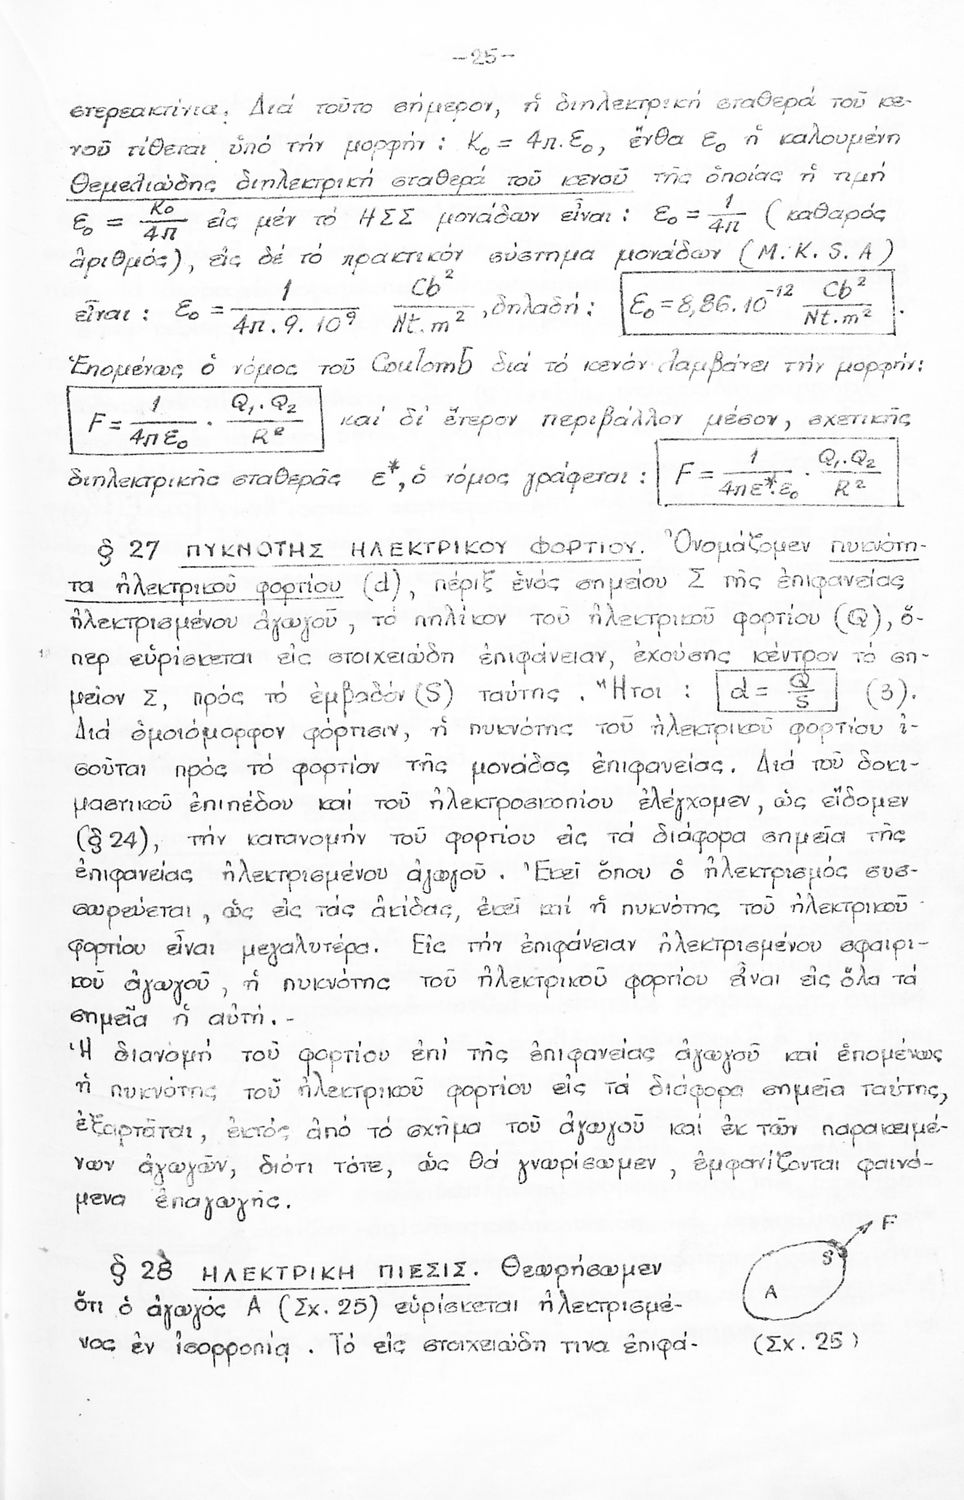 -25-
στερεακτίνια. Διά τοῦτο σήμερον, ἡ διηλεκτρική σταθερά τοῦ κε-
νοῦ τίθεται ὑπό τήν μορφήν : K₀ = 4π.ε₀, ἔνθα ε₀ ἡ καλουμένη
Θεμελιώδης διηλεκτρική σταθερά τοῦ κενοῦ τῆς ὁποίας ἡ τιμή
ε₀ = K₀/4π εἰς μέν τό ΗΣΣ μονάδων εἶναι : ε₀ = 1/4π ( καθαρός
ἀριθμός), εἰς δέ τό πρακτικόν σύστημα μονάδων ( M. K. S. A )
εἶναι : ε₀ = 1/4π.9.10⁹ Cb²/Nt.m² , δηλαδή : ε₀ = 8,86.10⁻¹² Cb²/Nt.m² .
Ἑπομένως ὁ νόμος τοῦ Coulomb διά τό κενόν λαμβάνει τήν μορφήν:
F = 1/4πε₀ . Q₁.Q₂/R² καί δι' ἕτερον περιβάλλον μέσον, σχετικῆς
διηλεκτρικῆς σταθερᾶς ε*, ὁ νόμος γράφεται : F = 1/4πε*.ε₀ . Q₁.Q₂/R²
§ 27 ΠΥΚΝΟΤΗΣ ΗΛΕΚΤΡΙΚΟΥ ΦΟΡΤΙΟΥ. Ὀνομάζομεν πυκνότη-
τα ἠλεκτρικοῦ φορτίου (d), πέριξ ἑνός σημείου Σ τῆς ἐπιφανείας
ἠλεκτρισμένου ἀγωγοῦ , τό πηλίκον τοῦ ἠλεκτρικοῦ φορτίου (Q), ὅ-
περ εὑρίσκεται εἰς στοιχειώδη ἐπιφάνειαν, ἐχούσης κέντρον τό ση-
μεῖον Σ, πρός τό ἐμβαδόν (S) ταύτης . Ἤτοι : d = Q/S (3).
Διά ὁμοιόμορφον φόρτισιν, ἡ πυκνότης τοῦ ἠλεκτρικοῦ φορτίου ἰ-
σοῦται πρός τό φορτίον τῆς μονάδος ἐπιφανείας. Διά τοῦ δοκι-
μαστικοῦ ἐπιπέδου καί τοῦ ἠλεκτροσκοπίου ἐλέγχομεν, ὡς εἴδομεν
(§ 24), τήν κατανομήν τοῦ φορτίου εἰς τά διάφορα σημεῖα τῆς
ἐπιφανείας ἠλεκτρισμένου ἀγωγοῦ . Ἐκεῖ ὅπου ὁ ἠλεκτρισμός συσ-
σωρεύεται , ὡς εἰς τάς ἀκίδας, ἐκεῖ καί ἡ πυκνότης τοῦ ἠλεκτρικοῦ
φορτίου εἶναι μεγαλυτέρα. Εἰς τήν ἐπιφάνειαν ἠλεκτρισμένου σφαιρι-
κοῦ ἀγωγοῦ , ἡ πυκνότης τοῦ ἠλεκτρικοῦ φορτίου εἶναι εἰς ὅλα τά
σημεῖα ἡ αὐτή. -
Ἡ διανομή τοῦ φορτίου ἐπί τῆς ἐπιφανείας ἀγωγοῦ καί ἑπομένως
ἡ πυκνότης τοῦ ἠλεκτρικοῦ φορτίου εἰς τά διάφορα σημεῖα ταύτης,
ἐξαρτᾶται, ἐκτός ἀπό τό σχῆμα τοῦ ἀγωγοῦ καί ἐκ τῶν παρακειμέ-
νων ἀγωγῶν, διότι τότε, ὡς θά γνωρίσωμεν , ἐμφανίζονται φαινό-
μενα ἐπαγωγῆς.
§ 28 ΗΛΕΚΤΡΙΚΗ ΠΙΕΣΙΣ. Θεωρήσωμεν
ὅτι ὁ ἀγωγός Α (Σχ. 25) εὑρίσκεται ἠλεκτρισμέ-
νος ἐν ἰσορροπίᾳ . Τό εἰς στοιχειώδη τινα ἐπιφά-
F
S
A
(Σχ. 25)